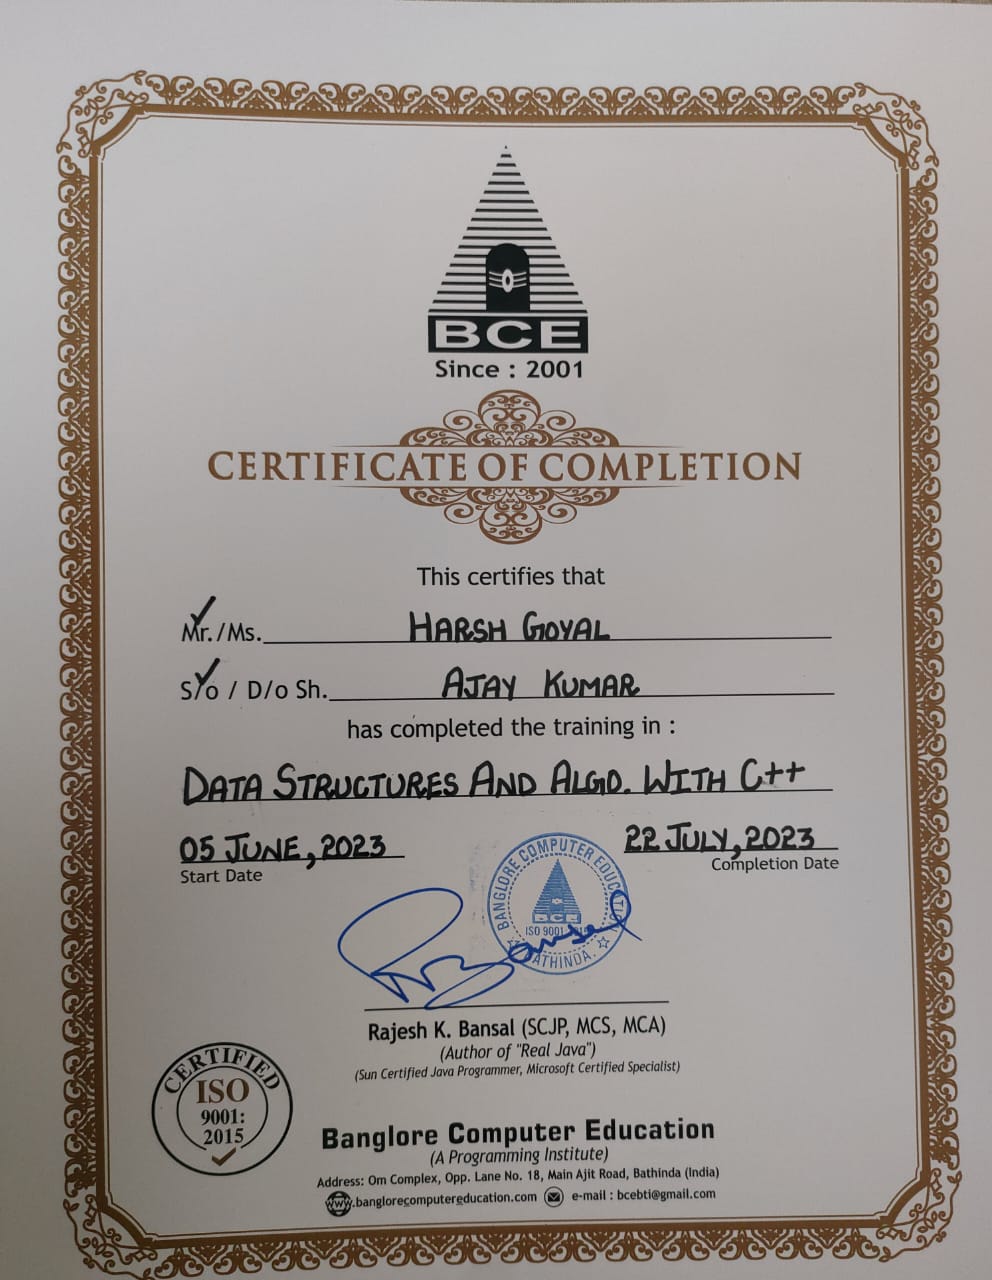 BCE
Since : 2001
CERTIFICATE OF COMPLETION
This certifies that
Mr./Ms. HARSH GOYAL
S/o / D/o Sh. AJAY KUMAR
has completed the training in :
DATA STRUCTURES AND ALGO. WITH C++
05 JUNE, 2023 22 JULY, 2023
Start Date Completion Date
BANGLORE COMPUTER EDUCATION
BCE
ISO 9001
BATHINDA.
Rajesh K. Bansal (SCJP, MCS, MCA)
(Author of "Real Java")
(Sun Certified Java Programmer, Microsoft Certified Specialist)
CERTIFIED
ISO
9001:
2015
Banglore Computer Education
(A Programming Institute)
Address: Om Complex, Opp. Lane No. 18, Main Ajit Road, Bathinda (India)
www.banglorecomputereducation.com e-mail : bcebti@gmail.com